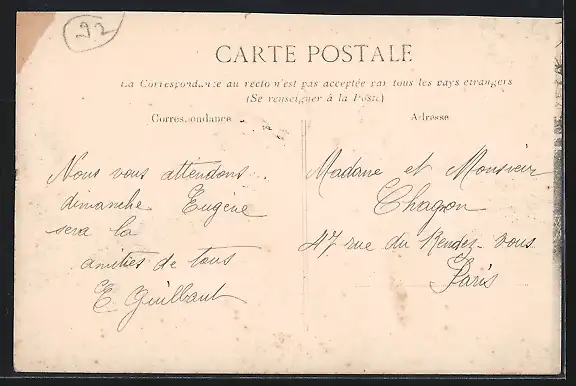 92
CARTE POSTALE
La Correspondance au recto n'est pas acceptée par tous les pays étrangers
(Se renseigner à la Poste)
Correspondance
Adresse
Nous vous attendons
dimanche Eugène
sera là
amitiés de tous
E. Guilbaut
Madame et Monsieur
Chagon
47 rue du Rendez-vous
Paris